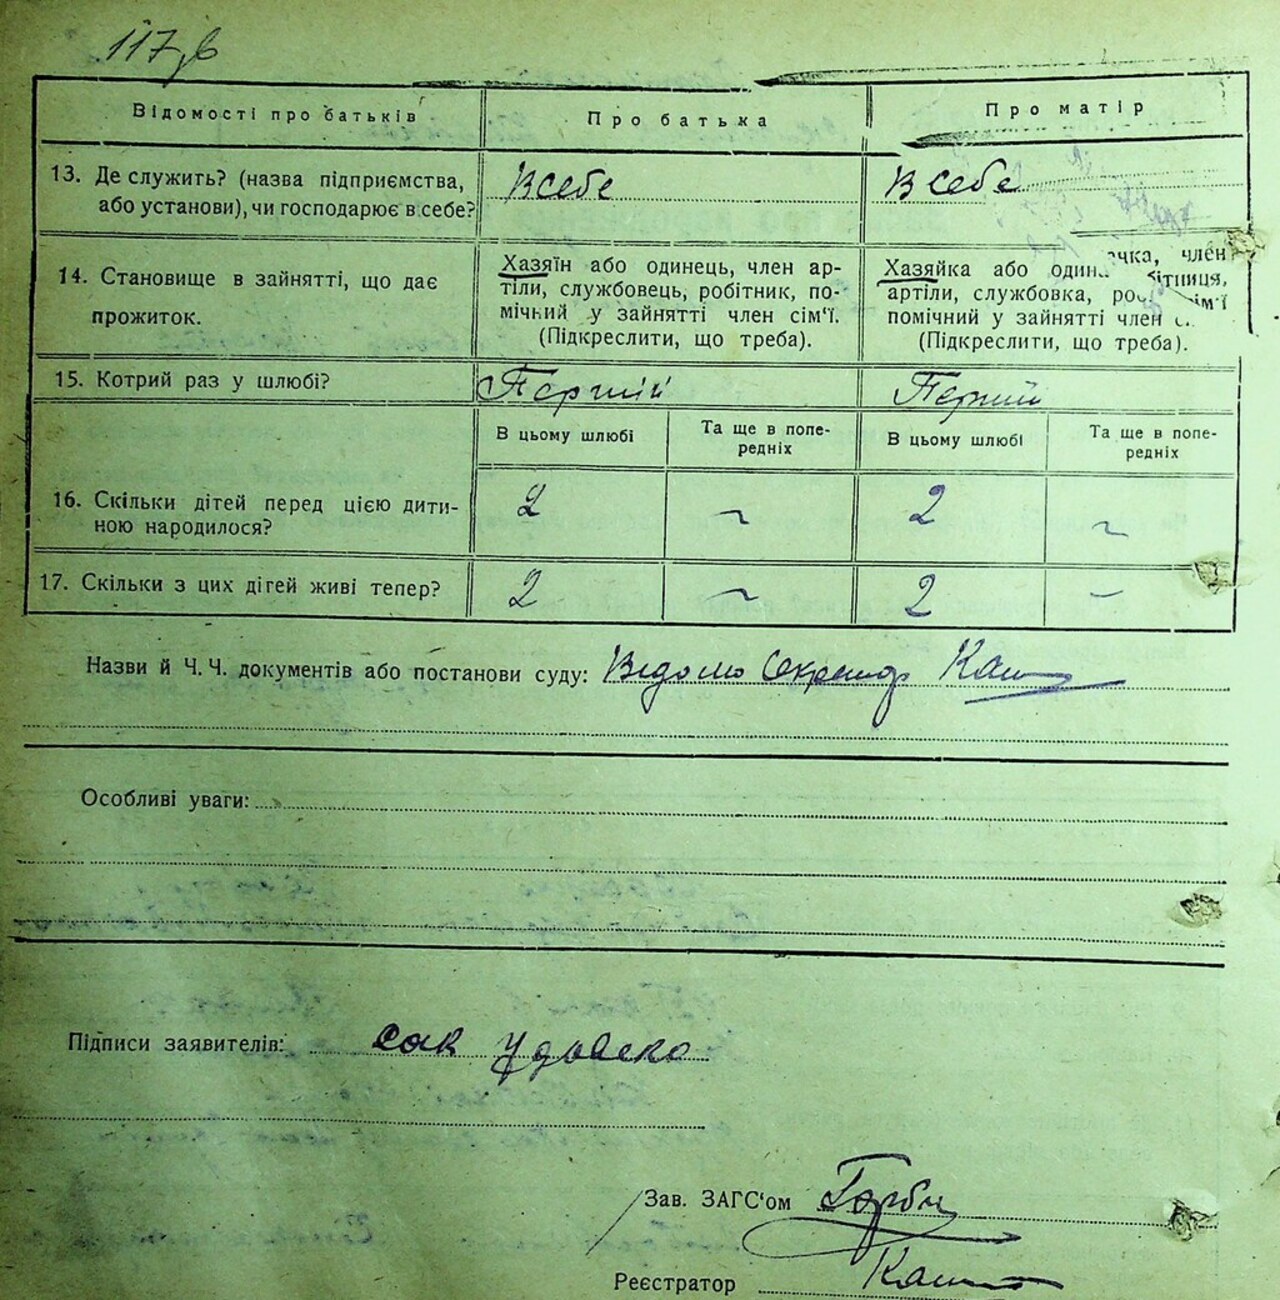 117 зв
Відомості про батьків
Про батька
Про матір
13. Де служить? (назва підприємства,
або установи), чи господарює в себе?
В себе
В себе
14. Становище в зайнятті, що дає
прожиток.
Хазяїн або одинець, член ар-
тіли, службовець, робітник, по-
мічний у зайнятті член сім'ї.
(Підкреслити, що треба).
Хазяйка або один чка, член
артіли, службовка, роб бітниця,
помічний у зайнятті член с. сім'ї
(Підкреслити, що треба).
15. Котрий раз у шлюбі?
Перший
Перший
В цьому шлюбі
Та ще в попе-
редніх
В цьому шлюбі
Та ще в попе-
редніх
16. Скільки дітей перед цією дити-
ною народилося?
2 ~ 2 ~
17. Скільки з цих дітей живі тепер?
2 ~ 2 –
Назви й Ч. Ч. документів або постанови суду: Відомо Секретар
Особливі уваги:
Підписи заявителів: сак Удовеко
Зав. ЗАГС'ом
Реєстратор